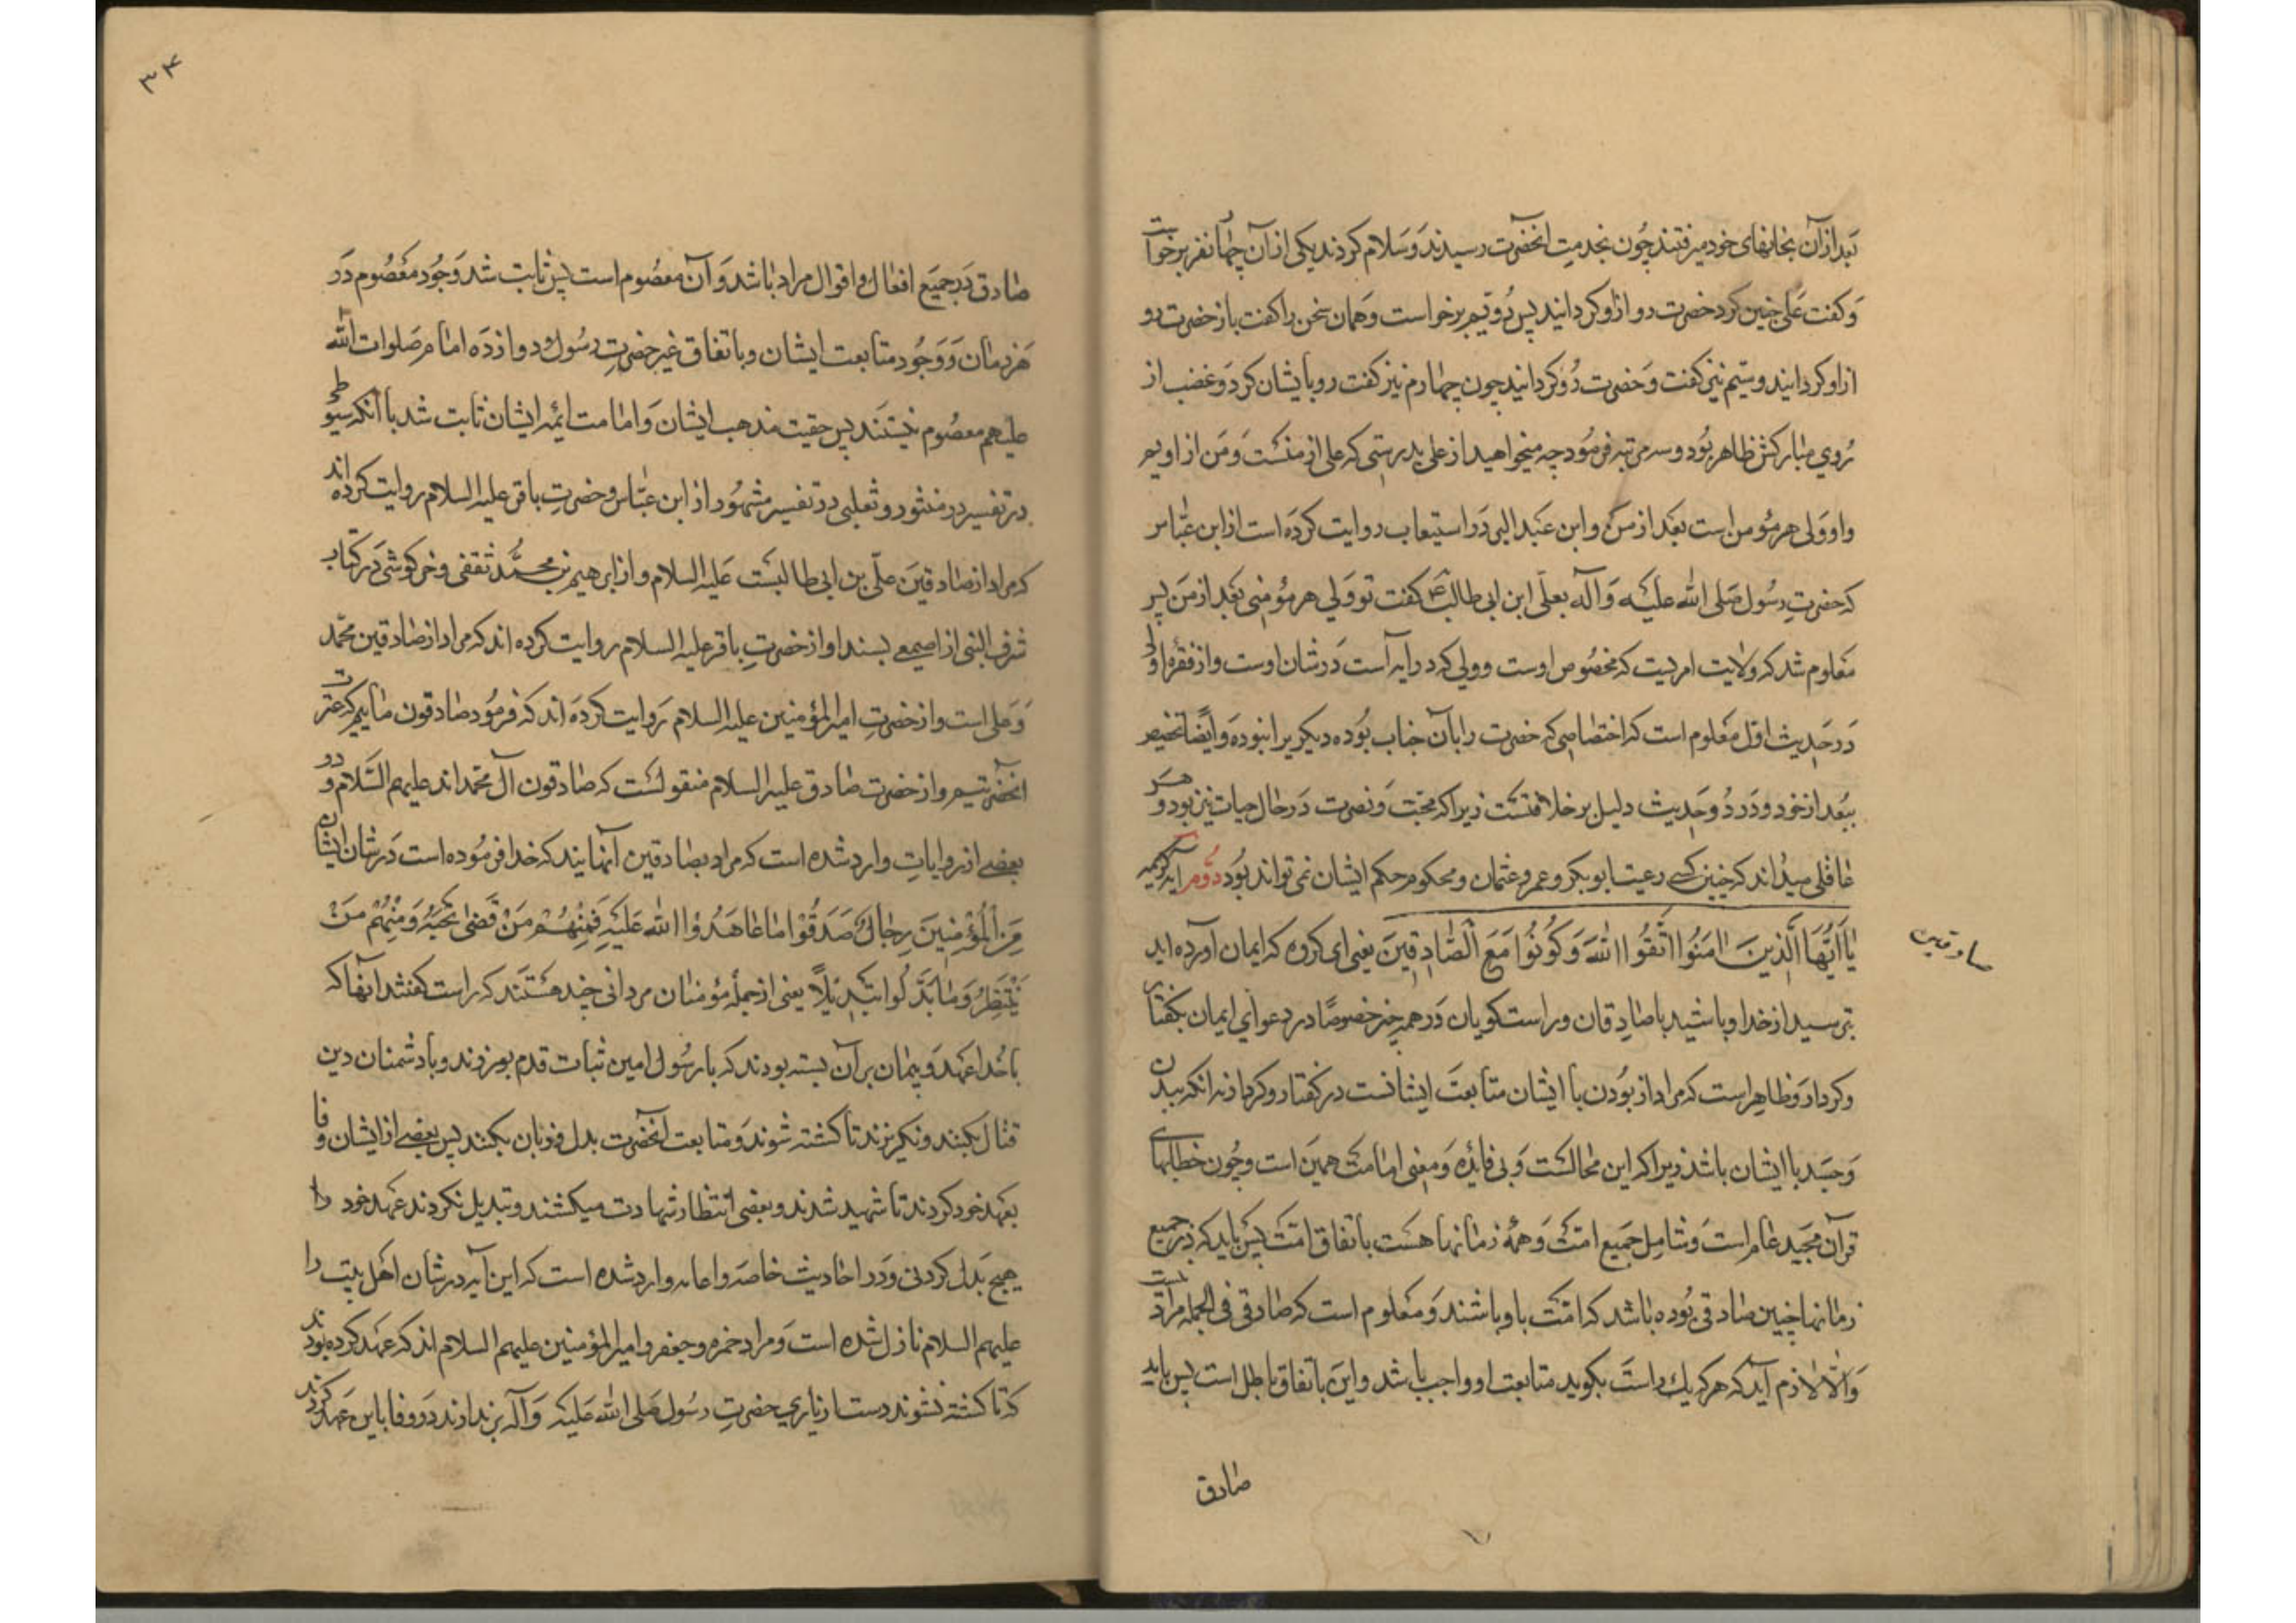 بعد از آن بخانهای خود میرفتند چون بخدمت انحضرت رسیدند و سلام کردند یکی از آن چهار نفر برخواست
و کفت علی چنین کرد حضرت رو از او کردانید پس دویم برخواست و همان سخن را کفت باز حضرت رو
از او کردانید و سیم نیز کفت و حضرت رو کردانید چون چهارم نیز کفت رو بایشان کرد و غضب از
روی مبارکش ظاهر بود و سه مرتبه فرمود چه میخواهید از علی بدرستی که علی از منست و من از اویم
و او ولی هر مؤمن است بعد از من و ابن عبد البر در استیعاب روایت کرده است از ابن عباس
که حضرت رسول صلی الله علیه و آله بعلی ابن ابی طالب ع کفت تو ولی هر مؤمنی بعد از من پس
معلوم شد که ولایت امریست که مخصوص اوست و ولی که در ایه است در شان اوست و از فقره اولی
در حدیث اول معلوم است که اختصاصی که حضرت را بآن جناب بوده دیکریرا نبوده و ایضا تخصیص
ببعد از خود در دو حدیث دلیل بر خلافتست زیرا که محبت و نصرت در حال حیات نیز بود و هر
عاقلی میداند که چنین کسی رعیت ابوبکر و عمر و عثمان و محکوم حکم ایشان نمی تواند بود دوم ایه کریمه
یا ایها الذین امنوا اتقوا الله و کونوا مع الصادقین یعنی ای کروه که ایمان آورده اید
بترسید از خدا و باشید با صادقان و راست کویان در همه چیز خصوصا در دعوای ایمان بکفتار
و کردار و ظاهر است که مراد از بودن با ایشان متابعت ایشانست در کفتار و کردار نه انکه ببدن
و جسد با ایشان باشد زیرا که این محالست و بی فائده و معنی امامت همین است و چون خطابهای
قرآن مجید عام است و شامل جمیع امت و همه زمانها هست باتفاق امت پس باید که در جمیع
زمانها چنین صادقی بوده باشد که امت با او باشند و معلوم است که صادقی فی الجمله مراد نیست
و الا لازم آید که هر که یک راست بکوید متابعت او واجب باشد و این باتفاق باطل است پس باید
صادق
صادقین
۳۴
صادق در جمیع افعال و اقوال مراد باشد و آن معصوم است پس ثابت شد وجود معصوم در
هر زمان و وجود متابعت ایشان و باتفاق غیر حضرت رسول و دوازده امام صلوات الله
علیهم معصوم نیستند پس حقیت مذهب ایشان و امامت ائمه ایشان ثابت شد با آنکه سیوطی
در تفسیر در منثور و ثعلبی در تفسیر مشهور از ابن عباس و حضرت باقر علیه السلام روایت کرده اند
که مراد از صادقین علی بن ابی طالبست علیه السلام و از ابرهیم بن محمد ثقفی و خرکوشی در کتاب
شرف النبی از اصمعی بسند او از حضرت باقر علیه السلام روایت کرده اند که مراد از صادقین محمد
و علی است و از حضرت امیر المؤمنین علیه السلام روایت کرده اند که فرمود صادقون ماییم که عترت
انحضرتیم و از حضرت صادق علیه السلام منقولست که صادقون آل محمد اند علیهم السلام و در
بعضی از روایات وارد شده است که مراد بصادقین آنهایند که خدا فرموده است در شان ایشان
من المؤمنین رجال صدقوا ما عاهدوا الله علیه فمنهم من قضی نحبه و منهم من
ینتظر و ما بدلوا تبدیلا یعنی از جمله مؤمنان مردانی چند هستند که راست کفتند آنها که
با خدا عهد و پیمان بر آن بسته بودند که با رسول امین ثبات قدم بورزند و با دشمنان دین
قتال بکنند و نکریزند تا کشته شوند و متابعت آنحضرت بدل و زبان بکنند پس بعضی از ایشان وفا
بعهد خود کردند تا شهید شدند و بعضی انتظار شهادت میکشند و تبدیل نکردند عهد خود را
هیچ بدل کردنی و در احادیث خاصه و عامه وارد شده است که این آیه در شان اهل بیت را
علیهم السلام نازل شده است و مراد حمزه و جعفر و امیر المؤمنین علیهم السلام اند که عهد کرده بودند
که تا کشته نشوند دست از یاری حضرت رسول صلی الله علیه و آله بر ندارند و وفا باین عهد کردند